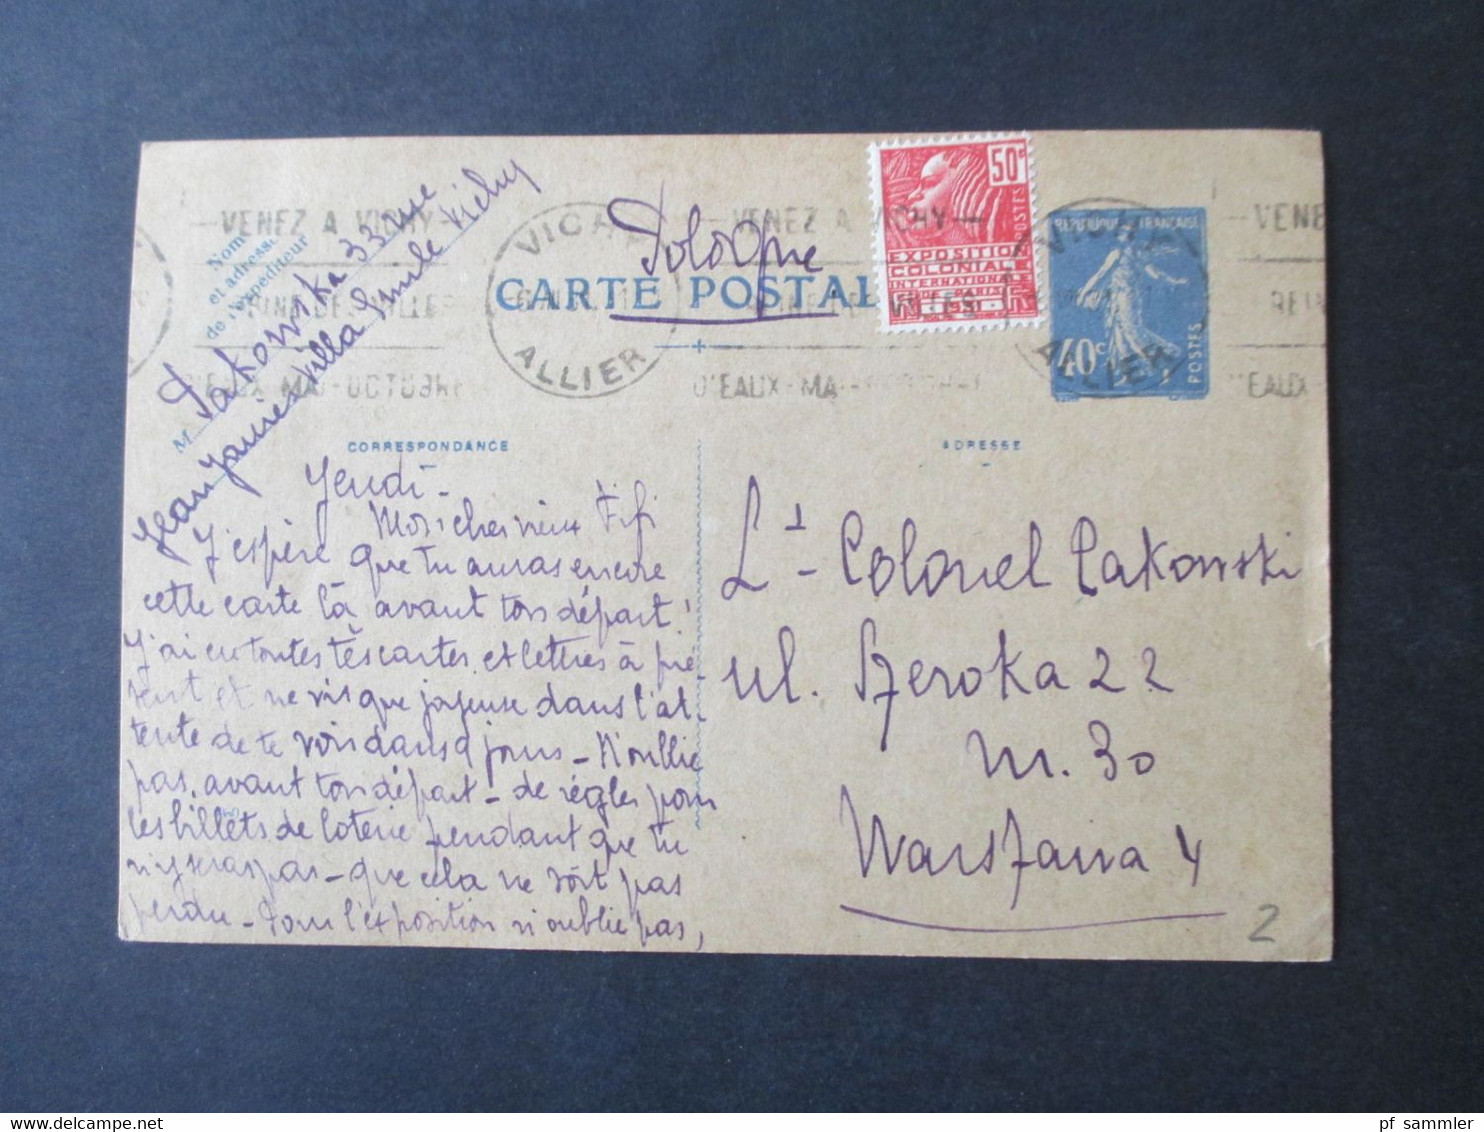 VENEZ A VICHY
VENEZ A VICHY
VENE
Nom
et adresse
de l'expéditeur
M
Cakowska 33 rue
Jean Jaurès Villa Emile Vichy
VICHY
ALLIER
Pologne
CARTE POSTAL
50c
POSTES
EXPOSITION
COLONIALE
INTERNATIONALE
DE PARIS
1931
REPUBLIQUE FRANÇAISE
40c
POSTES
VICHY
ALLIER
REINE DES VILLES
REINE DES VILLES
REIN
D'EAUX-MAI-OCTOBRE
D'EAUX-MAI-OCTOBRE
'EAUX
CORRESPONDANCE
ADRESSE
Jeudi-
Mon cher vieux Fifi
J'espère que tu auras encore
cette carte là avant ton départ!
J'ai eu toutes tes cartes et lettres à pré-
sent et ne vis que joyeuse dans l'at-
tente de te voir dans 9 jours - N'oublie
pas, avant ton départ - de régler pour
les billets de loterie pendant que tu
n'y seras pas - que cela ne soit pas
perdu - Pour l'exposition n'oublie pas,
Lt - Colonel Cakowski
ul. Szeroka 22
m. 30
Warszawa 4
2
pf sammler